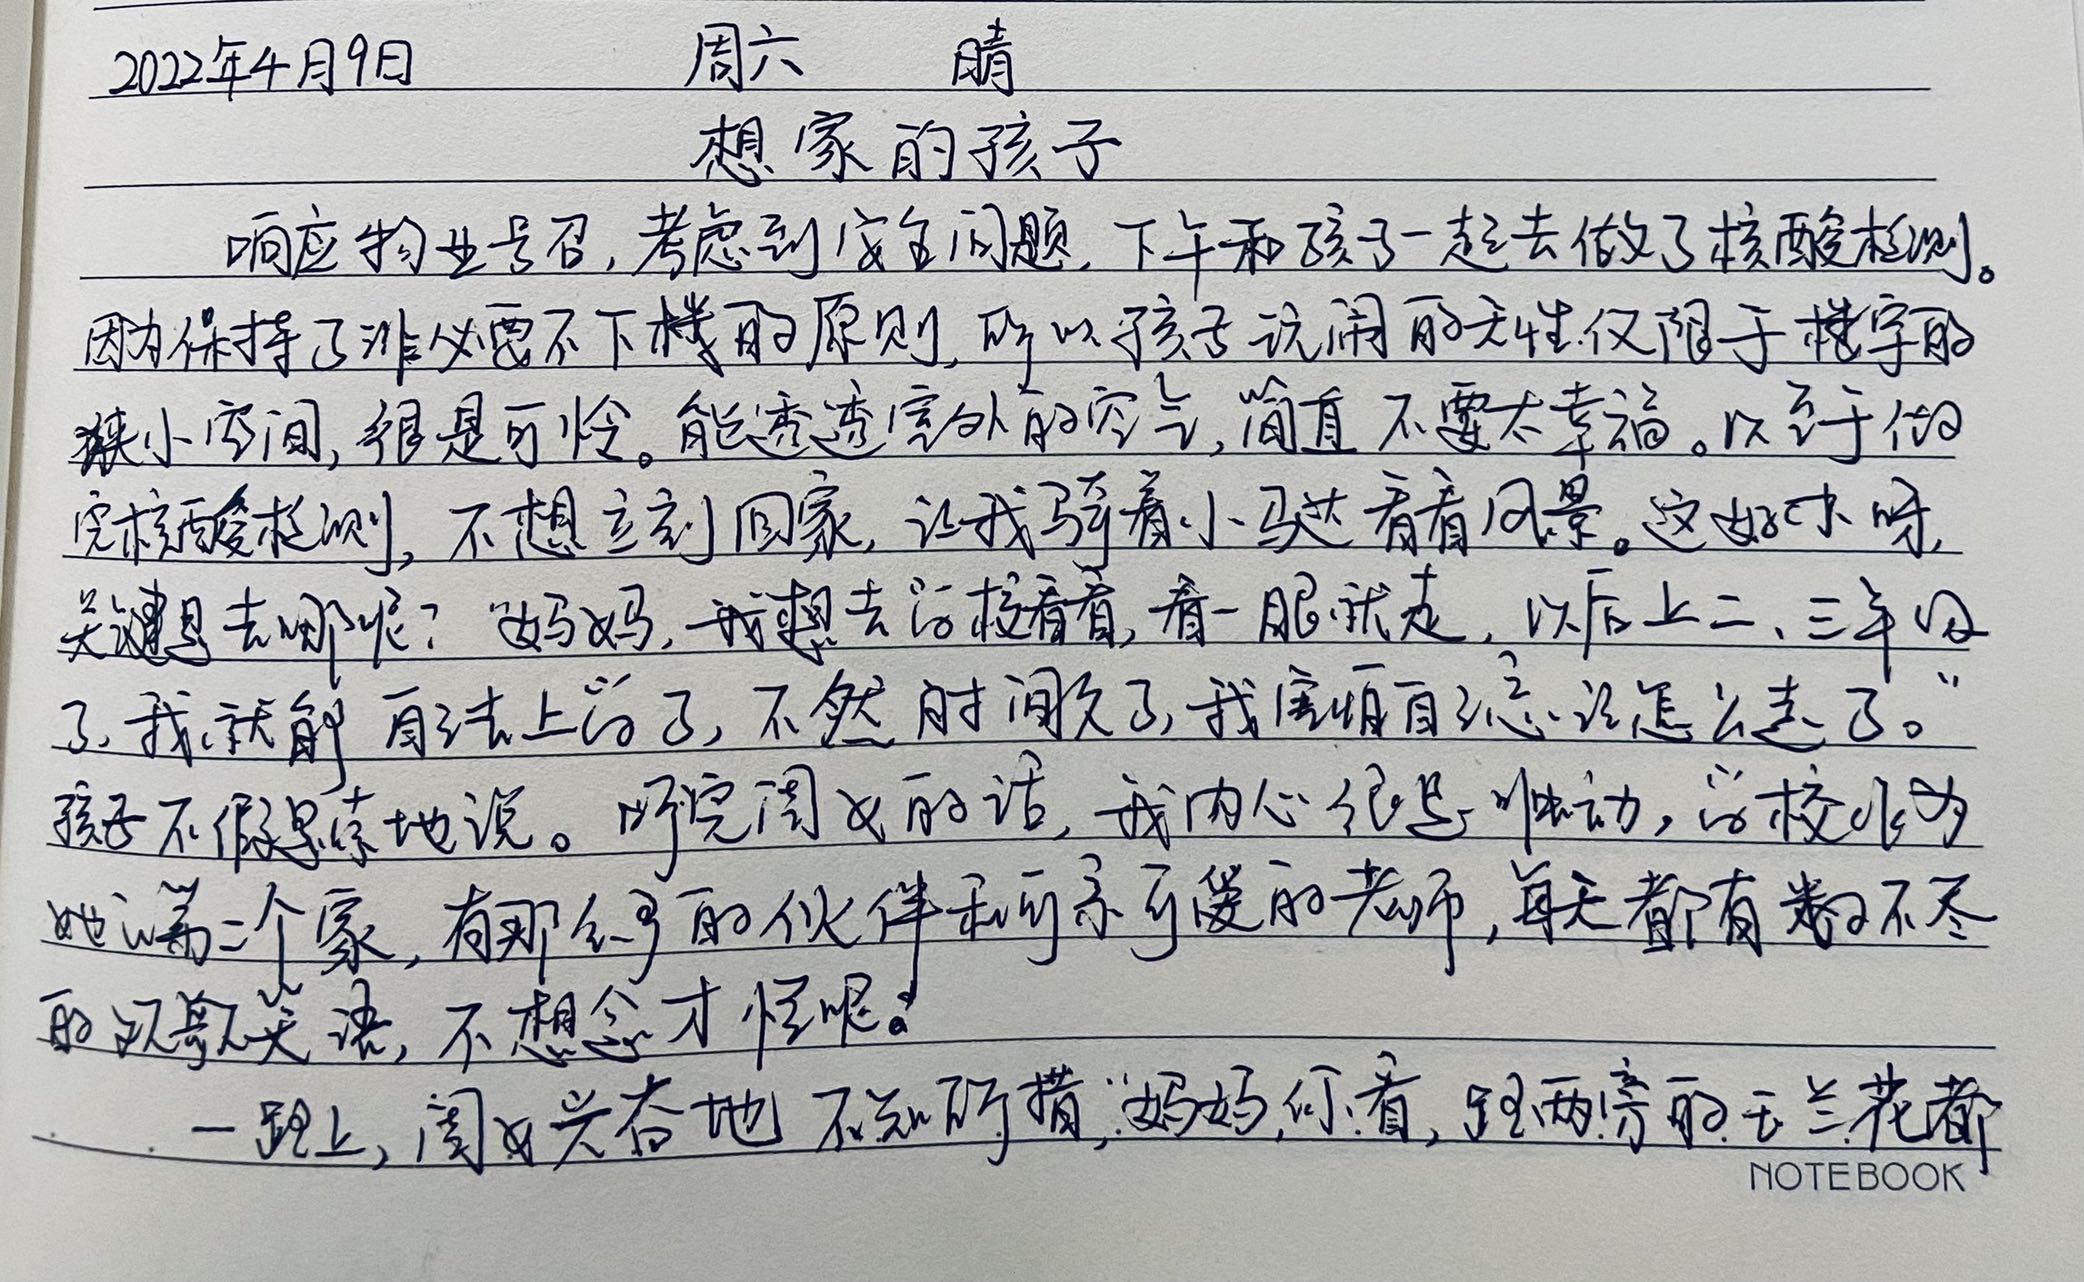 2022年4月9日 周六 晴
想家的孩子
响应物业号召,考虑到安全问题,下午和孩子一起去做了核酸检测。
因为保持了非必要不下楼的原则,所以孩子玩闹的天性仅限于楼宇的
狭小空间,很是可怜。能透透室外的空气,简直不要太幸福。以至于做
完核酸检测,不想立刻回家,让我骑着小马达看看风景。这好办呀,
关键是去哪呢?“妈妈,我想去学校看看,看一眼就走,以后上二、三年级
了,我就能自己去上学了,不然时间久了,我害怕自己忘记怎么走了。”
孩子不假思索地说。听完闺女的话,我内心很是触动,学校作为
她第二个家,有那么多的伙伴和可亲可爱的老师,每天都有数不尽
的欢歌笑语,不想念才怪呢。
一路上,闺女兴奋地不知所措,“妈妈,你看,路两旁的玉兰花都
NOTEBOOK